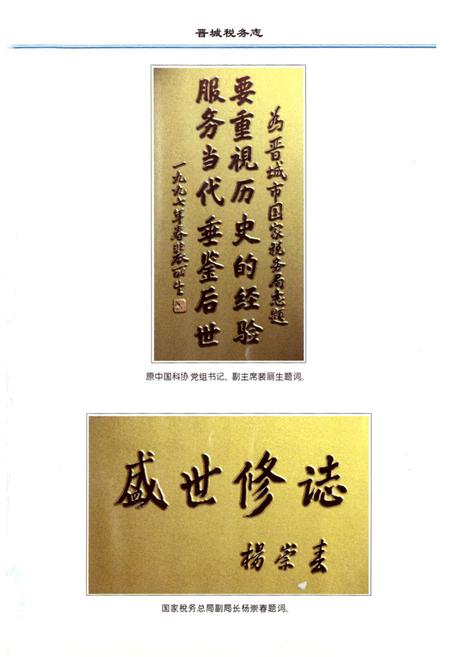 晋城税务志
为晋城市国家税务局志题
要重視历史的经验
服务当代垂鉴后世
一九九七年春裴丽生
原中国科协党组书记、副主席裴丽生题词。
盛世修誌
楊崇春
国家税务总局副局长杨崇春题词。